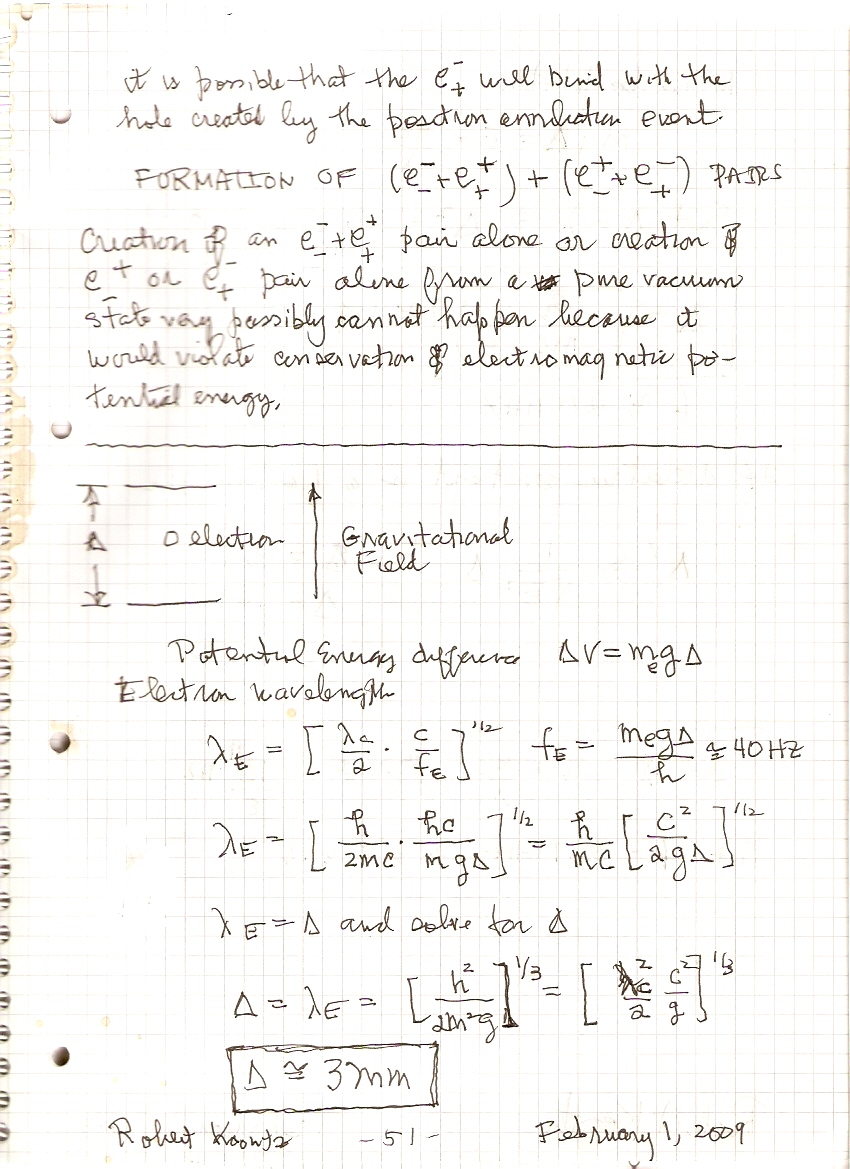 it is possible that the e⁻₊ will bind with the
hole created by the positron annihilation event.
FORMATION OF (e⁻₋+e⁺₊) + (e⁺₋+e⁻₊) PAIRS
Creation of an e⁻₋+e⁺₊ pair alone or creation of
e⁺₋ or e⁻₊ pair alone from a pure vacuum
state very possibly cannot happen because it
would violate conservation of electromagnetic po-
tential energy,
Δ electron Gravitational
Field
Potential Energy difference ΔV = mₑgΔ
Electron wavelength
λ_E = [λc/2 · c/f_E]^1/2 f_E = mₑgΔ/h ≅ 40 HZ
λ_E = [h/2mc · hc/mgΔ]^1/2 = h/mc [c²/2gΔ]^1/2
λ_E = Δ and solve for Δ
Δ = λ_E = [h²/2m²g]^1/3 = [λc²/2 c²/g]^1/3
Δ ≅ 3mm
Robert Koontz -51- February 1, 2009